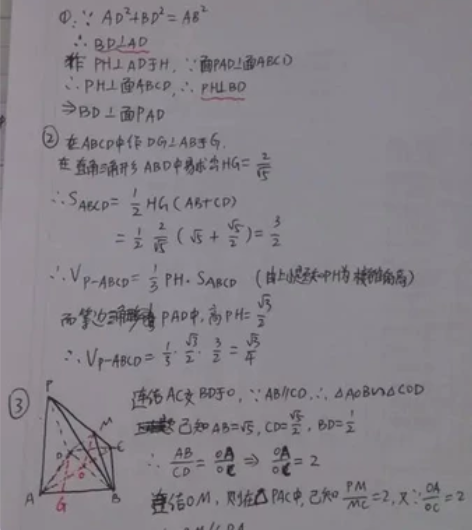 ①. ∵ AD²+BD²=AB²
∴ BD⊥AD
作 PH⊥AD于H, ∵面PAD⊥面ABCD
∴PH⊥面ABCD, ∴PH⊥BD
⇒BD⊥面PAD
② 在ABCD中作DG⊥AB于G,
在直角三角形ABD中易求出HG=2/√5
∴S_ABCD= 1/2 HG(AB+CD)
= 1/2 · 2/√5 (√5+√5/2)=3/2
∴V_P-ABCD=1/3 PH·S_ABCD (由上 PH为棱锥的高)
而等边三角形PAD中,高PH=√3/2
∴V_P-ABCD=1/3·√3/2·3/2=√3/4
③ 连结AC交BD于O, ∵AB//CD,∴△AOB∽△COD
已知AB=√5, CD=√5/2, BD=1/2
∴ AB/CD=OA/OC ⇒ OA/OC=2
连结OM, 则在△PAC中,已知PM/MC=2,又∵OA/OC=2
P
M
D
C
O
A
G
B